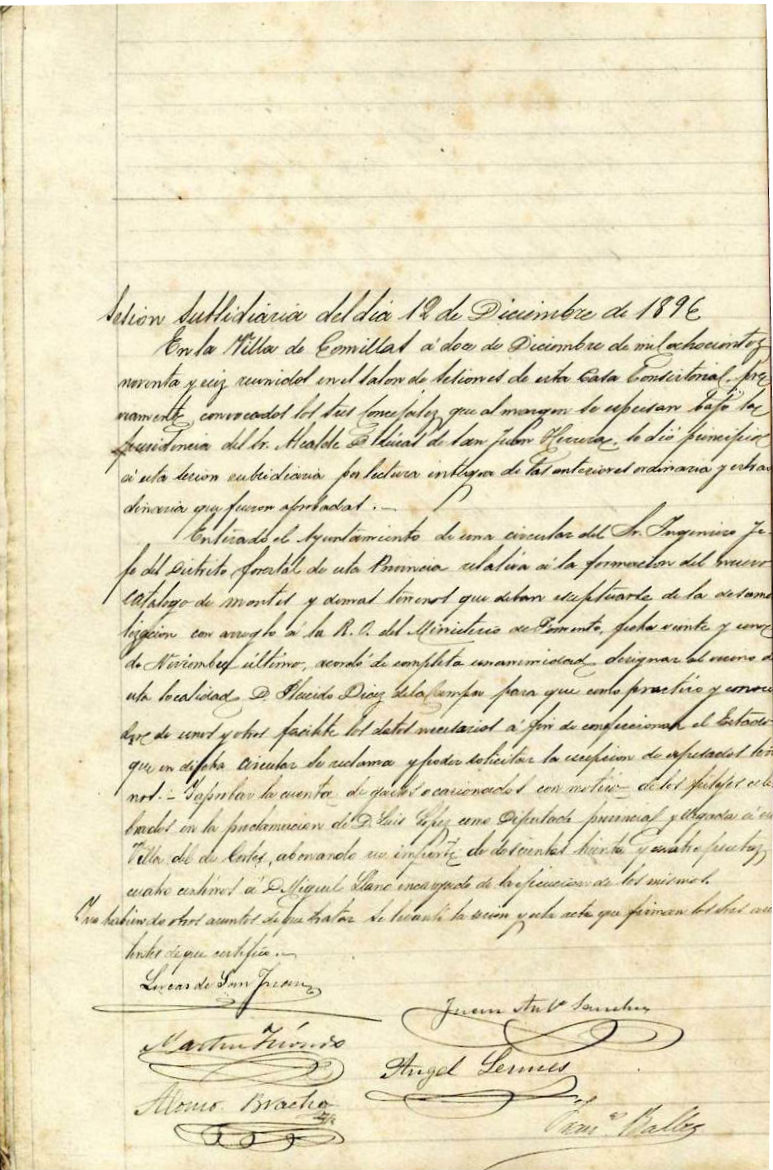 Sesion subsidiaria del dia 12 de Diciembre de 1896
En la Villa de Comillas á doce de Diciembre de mil ochocientos
noventa y seiz reunidos en el salon de sesiones de esta Casa Consistorial, pre
viamente convocados los Sres Concejales que al margen se espresan bajo la
presidencia del Sr. Alcalde D. Lucas de San Juan Herrera, se dió principio
á esta sesion subsidiaria por lectura integra de las anteriores ordinaria y extraor
dinaria que fueron aprobadas. —
Enterado el Ayuntamiento de una circular del Sr. Ingeniero Je-
fe del Distrito forestal de esta Provincia relativa á la formacion del nuevo
catalogo de montes y demas terrenos que deban exceptuarse de la desamor
tizacion con arreglo á la R. O. del Ministerio de Fomento, fecha veinte y uno
de Noviembre último, acordó de completa unanimidad designar al vecino de
esta localidad D. Placido Diaz de la Campa para que como practico y conoce
dor de unos y otros facilite los datos necesarios á fin de confeccionar el Estado
que en dicha circular se reclama y poder solicitar la escepcion de espresados terre
nos. — Y aprobar la cuenta de gastos ocasionados con motivo de los festejos cele
brados en la proclamacion de D. Luis Lopez como Diputado provincial y llegada á esta
Villa del de Cortes, abonando su importe de doscientas treinta y cuatro pesetas
cuatro centimos á D Miguel Llano encargado de la ejecucion de los mismos.
Y no habiendo otros asuntos de que tratar se levantó la sesion y esta acta que firman los Sres asis
tentes de que certifico. —
Lucas de San Juan
Juan Antº Sanchez
Martin
Angel
Alonso Bracho